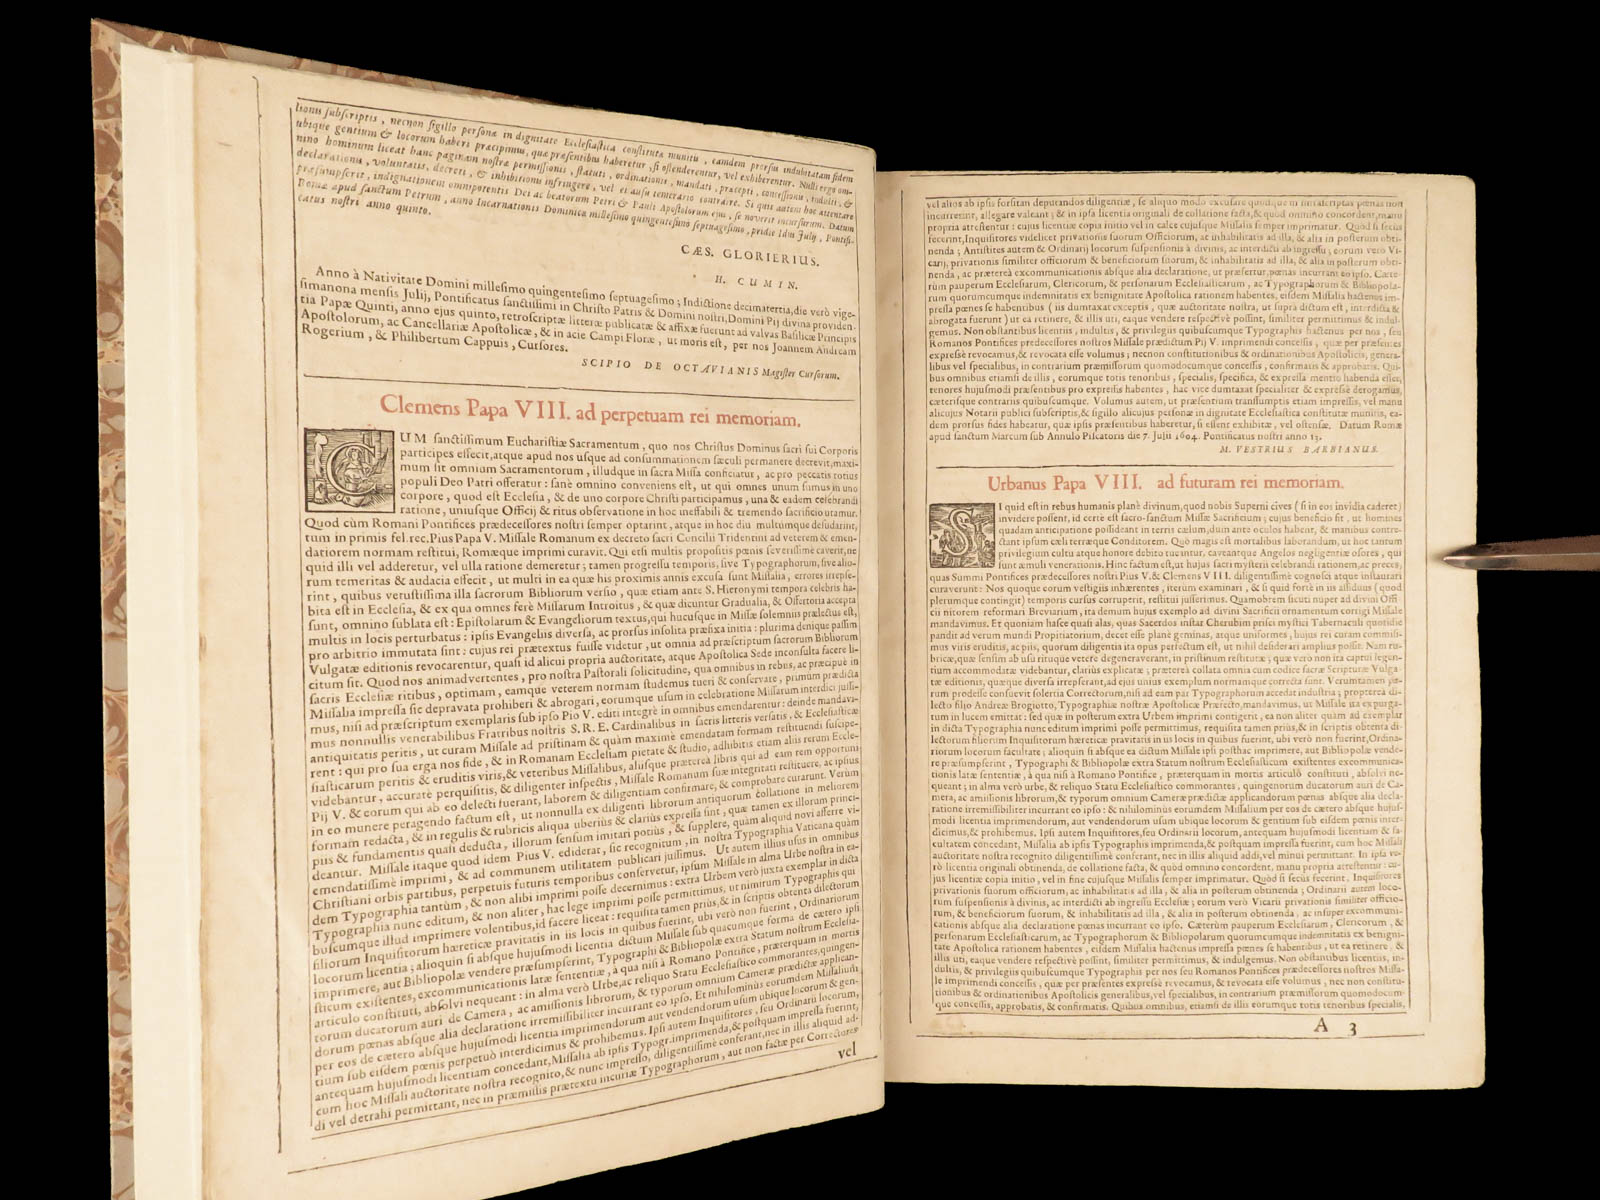 lionis subscriptis, necnon sigillo personæ in dignitate Ecclesiastica constitutæ munitis, eamdem prorsus indubitatam fidem
ubique gentium & locorum haberi præcipimus, quæ præsentibus haberetur, si ostenderentur, vel exhiberentur. Nulli ergo om-
nino hominum liceat hanc paginam nostræ permissionis, statuti, ordinationis, mandati, præcepti, concessionis, indulti, &
declarationis, voluntatis, decreti, & inhibitionis infringere, vel ei ausu temerario contraire. Si quis autem hoc attentare
præsumpserit, indignationem omnipotentis Dei ac beatorum Petri & Pauli Apostolorum ejus, se noverit incursurum. Datum
Romæ apud sanctum Petrum, anno Incarnationis Dominicæ millesimo quingentesimo septuagesimo, pridie Idus Julij, Pontifi-
catus nostri anno quinto.
CÆS. GLORIERIUS.
H. CUMIN.
Anno à Nativitate Domini millesimo quingentesimo septuagesimo; Indictione decimatertia, die verò vige-
simanona mensis Julij, Pontificatus sanctissimi in Christo Patris & Domini nostri, Domini Pij divina providen-
tia Papæ Quinti, anno ejus quinto, retroscriptæ litteræ publicatæ & affixæ fuerunt ad valvas Basilicæ Principis
Apostolorum, ac Cancellariæ Apostolicæ, & in acie Campi Floræ, ut moris est, per nos Joannem Andream
Rogerium, & Philibertum Cappuis, Cursores.
SCIPIO DE OCTAVIANIS Magister Cursorum.
Clemens Papa VIII. ad perpetuam rei memoriam.
CUM sanctissimum Eucharistiæ Sacramentum, quo nos Christus Dominus sacri sui Corporis
participes effecit, atque apud nos usque ad consummationem sæculi permanere decrevit, maxi-
mum sit omnium Sacramentorum, illudque in sacra Missa conficiatur, ac pro peccatis totius
populi Deo Patri offeratur: sanè omnino conveniens est, ut qui omnes unum sumus in uno
corpore, quod est Ecclesia, & de uno corpore Christi participamus, una & eadem celebrandi
ratione, uniusque Officij & ritus observatione in hoc ineffabili & tremendo sacrificio utamur.
Quod cùm Romani Pontifices prædecessores nostri semper optarint, atque in hoc diu multúmque desudarint,
tum in primis fel. rec. Pius Papa V. Missale Romanum ex decreto sacri Concilii Tridentini ad veterem & emen-
datiorem normam restitui, Romæque imprimi curavit. Qui etsi multis propositis pœnis severissimè caverit, ne
quid illi vel adderetur, vel ulla ratione demeretur; tamen progressu temporis, sive Typographorum, sive alio-
rum temeritas & audacia effecit, ut multi in ea quæ his proximis annis excusa sunt Missalia, errores irrepse-
rint, quibus vetustissima illa sacrorum Bibliorum versio, quæ etiam ante S. Hieronymi tempora celebris ha-
bita est in Ecclesia, & ex qua omnes ferè Missarum Introitus, & quæ dicuntur Gradualia, & Offertoria accepta
sunt, omnino sublata est: Epistolarum & Evangeliorum textus, qui hucusque in Missæ solemnis prælectus est,
multis in locis perturbatus: ipsis Evangeliis diversa, ac prorsus insolita præfixa initia: plurima denique passim
pro arbitrio immutata sint: cujus rei prætextus fuisse videtur, ut omnia ad præscriptum sacrorum Bibliorum
Vulgatæ editionis revocarentur, quasi id alicui propria auctoritate, atque Apostolica Sede inconsulta facere li-
citum sit. Quod nos animadvertentes, pro nostra Pastorali solicitudine, qua omnibus in rebus, ac præcipuè in
sacris Ecclesiæ ritibus, optimam, eamque veterem normam studemus tueri & conservare, primùm prædicta
Missalia impressa sic depravata prohiberi & abrogari, eorumque usum in celebratione Missarum interdici jussi-
mus, nisi ad præscriptum exemplaris sub ipso Pio V. editi integrè in omnibus emendarentur: deinde mandavi-
mus nonnullis venerabilibus Fratribus nostris S. R. E. Cardinalibus in sacris litteris versatis, & Ecclesiasticæ
antiquitatis peritis, ut curam Missale ad pristinam & quàm maximè emendatam formam restituendi suscipe-
rent: qui pro sua erga nos fide, & in Romanam Ecclesiam pietate & studio, adhibitis etiam aliis rerum Eccle-
siasticarum peritis & eruditis viris, & veteribus Missalibus, aliisque prætereà libris qui ad eam rem opportuni
videbantur, accuratè perquisitis, & diligenter inspectis, Missale Romanum suæ integritati restituere, ac ipsius
Pij V. & eorum qui ab eo delecti fuerant, laborem & diligentiam confirmare, & comprobare curarunt. Verùm
in eo munere peragendo factum est, ut nonnulla ex diligenti librorum antiquorum collatione in meliorem
formam redacta, & in regulis & rubricis aliqua uberiùs & clariùs expressa sint, quæ tamen ex illorum princi-
piis & fundamentis quasi deducta, illorum sensum imitari potiùs, & supplere, quàm aliquid novi afferre vi-
deantur. Missale itaque quod idem Pius V. ediderat, sic recognitum, in nostra Typographia Vaticana quàm
emendatissimè imprimi, & ad communem utilitatem publicari jussimus. Ut autem illius usus in omnibus
Christiani orbis partibus, perpetuis futuris temporibus conservetur, ipsum Missale in alma Urbe nostra in ea-
dem Typographia tantùm, & non alibi imprimi posse decernimus: extra Urbem verò juxta exemplar in dicta
Typographia nunc editum, & non aliter, hac lege imprimi posse permittimus, ut nimirum Typographis qui
buscumque illud imprimere volentibus, id facere liceat: requisita tamen priùs, & in scriptis obtenta dilectorum
filiorum Inquisitorum hæreticæ pravitatis in iis locis in quibus fuerint, ubi verò non fuerint, Ordinariorum
locorum licentia; alioquin si absque hujusmodi licentia dictum Missale sub quacumque forma de cætero ipsi
imprimere, aut Bibliopolæ vendere præsumpserint, Typographi & Bibliopolæ extra Statum nostrum Ecclesia-
sticum existentes, excommunicationis latæ sententiæ, à qua nisi à Romano Pontifice, præterquam in mortis
articulo constituti, absolvi nequeant: in alma verò Urbe, ac reliquo Statu Ecclesiastico commorantes, quingen-
torum ducatorum auri de Camera, ac amissionis librorum, & typorum omnium Cameræ prædictæ applican-
dorum pœnas absque alia declaratione irremissibiliter incurrant eo ipso. Et nihilominùs eorumdem Missalium
per eos de cætero absque hujusmodi licentia imprimendorum aut vendendorum usum ubique locorum & gen-
tium sub eisdem pœnis perpetuò interdicimus & prohibemus. Ipsi autem Inquisitores, seu Ordinarij locorum,
antequam hujusmodi licentiam concedant, Missalia ab ipsis Typogr. imprimenda, & postquam impressa fuerint,
cum hoc Missali auctoritate nostra recognito, & nunc impresso, diligentissimè conferant, nec in illis aliquid ad-
di vel detrahi permittant, nec in præmissis prætextu incuriæ Typographorum, aut non factæ per Correctores
vel
vel altos ab ipsis forsitan deputandos diligentiæ, se aliquo modo excusare quidquam in infrascriptas pœnas non
incurresint, allegare valeant; & in ipsa licentia originali de collatione facta, & quod omnino concordent, manu
propria attestentur: cujus licentiæ copia initio vel in calce cujusque Missalis semper imprimatur. Quòd si secùs
fecerint, Inquisitores videlicet privationis suorum Officiorum, ac inhabilitatis ad illa, & alia in posterum obti-
nenda; Antistites autem & Ordinarij locorum suspensionis à divinis, ac interdicti ab ingressu; eorum verò Vi-
carij, privationis similiter officiorum & beneficiorum suorum, & inhabilitatis ad illa, & alia in posterum obti-
nenda, ac prætereà excommunicationis absque alia declaratione, ut præfertur, pœnas incurrant eo ipso. Cæte-
rùm pauperum Ecclesiarum, Clericorum, & personarum Ecclesiasticarum, ac Typographorum & Bibliopola-
rum quorumcumque indemnitatis ex benignitate Apostolica rationem habentes, eisdem Missalia hactenus im-
pressa pœnes se habentibus (iis dumtaxat exceptis, quæ auctoritate nostra, ut suprà dictum est, interdicta &
abrogata fuerunt) ut ea retinere, & illis uti, eaque vendere respectivè possint, similiter permittimus & indul-
gemus. Non obstantibus licentiis, indultis, & privilegiis quibuscumque Typographis hactenus per nos, seu
Romanos Pontifices predecessores nostros Missale prædictum Pij V. imprimendi concessis, quæ per præsentes
expressè revocamus, & revocata esse volumus; necnon constitutionibus & ordinationibus Apostolicis, genera-
libus vel specialibus, in contrarium præmissorum quomodocumque concessis, confirmatis & approbatis. Qui-
bus omnibus etiamsi de illis, eorumque totis tenoribus, specialis, specifica, & expressa mentio habenda esset,
tenores hujusmodi præsentibus pro expressis habentes, hac vice dumtaxat specialiter & expressè derogamus,
cæterisque contrariis quibuscumque. Volumus autem, ut præsentium transsumptis etiam impressis, vel manu
alicujus Notarii publici subscriptis, & sigillo alicujus personæ in dignitate Ecclesiastica constitutæ munitis, ea-
dem prorsus fides habeatur, quæ ipsis præsentibus haberetur, si essent exhibitæ, vel ostensæ. Datum Romæ
apud sanctum Marcum sub Annulo Piscatoris die 7. Julii 1604. Pontificatus nostri anno 13.
M. VESTRIUS BARBIANUS.
Urbanus Papa VIII. ad futuram rei memoriam.
SI quid est in rebus humanis planè divinum, quod nobis Superni cives (si in eos invidia caderet)
invidere possent, id certè est sacro-sanctum Missæ Sacrificium; cujus beneficio fit, ut homines
quadam anticipatione possideant in terris cælum, dum ante oculos habent, & manibus contre-
ctant ipsum cæli terræque Conditorem. Quò magis est mortalibus laborandum, ut hoc tantum
privilegium cultu atque honore debito tueantur, caveantque Angelos negligentiæ osores, qui
sunt æmuli venerationis. Hinc factum est, ut hujus sacri mysterii celebrandi rationem, ac preces,
quas Summi Pontifices prædecessores nostri Pius V. & Clemens VIII. diligentissimè cognosci atque instaurari
curaverunt: Nos quoque eorum vestigiis inhærentes, iterum examinari, & si quid fortè in iis assiduus (quod
plerumque contingit) temporis cursus corruperit, restitui jusserimus. Quamobrem sicuti nuper ad divini Offi-
cii nitorem reformari Breviarium, ita demum hujus exemplo ad divini Sacrificii ornamentum corrigi Missale
mandavimus. Et quoniam hasce quasi alas, quas Sacerdos instar Cherubim prisci mystici Tabernaculi quotidie
pandit ad verum mundi Propitiatorium, decet esse planè geminas, atque uniformes, hujus rei curam commisi-
mus viris eruditis, ac piis, quorum diligentia ita opus perfectum est, ut nihil desiderari amplius possit. Nam ru-
bricæ, quæ sensim ab usu rituque vetere degeneraverant, in pristinum restitutæ; quæ verò non ita captui legen-
tium accommodatæ videbantur, clariùs explicatæ; prætereà collata omnia cum codice sacræ Scripturæ Vulga-
tæ editionis, quæque diversa irrepserant, ad ejus unius exemplum normamque correcta sunt. Verumtamen pa-
rum prodesse consuevit solertia Correctorum, nisi ad eam par Typographorum accedat industria; proptereà di-
lecto filio Andreæ Brogiotto, Typographiæ nostræ Apostolicæ Præfecto, mandavimus, ut Missale ita expurga-
tum in lucem emittat: sed quæ in posterum extra Urbem imprimi contigerit, ea non aliter quàm ad exemplar
in dicta Typographia nunc editum imprimi posse permittimus, requisita tamen priùs, & in scriptis obtenta di-
lectorum filiorum Inquisitorum hæreticæ pravitatis in iis locis in quibus fuerint, ubi verò non fuerint, Ordina-
riorum locorum facultate; alioquin si absque ea dictum Missale ipsi posthac imprimere, aut Bibliopolæ vende-
re præsumpserint, Typographi & Bibliopolæ extra Statum nostrum Ecclesiasticum existentes excommunica-
tionis latæ sententiæ, à qua nisi à Romano Pontifice, præterquam in mortis articulo constituti, absolvi ne-
queant; in alma verò urbe, & reliquo Statu Ecclesiastico commorantes, quingenorum ducatorum auri de Ca-
mera, ac amissionis librorum, & typorum omnium Cameræ prædictæ applicandorum pœnas absque alia decla-
ratione irremissibiliter incurrant eo ipso: & nihilominùs eorumdem Missalium per eos de cætero absque hujus-
modi licentia imprimendorum, aut vendendorum usum ubique locorum & gentium sub eisdem pœnis inter-
dicimus, & prohibemus. Ipsi autem Inquisitores, seu Ordinarii locorum, antequam hujusmodi licentiam & fa-
cultatem concedant, Missalia ab ipsis Typographis imprimenda, & postquam impressa fuerint, cum hoc Missali
auctoritate nostra recognito diligentissimè conferant, nec in illis aliquid addi, vel minui permittant. In ipsa ve-
rò licentia originali obtinenda, de collatione facta, & quòd omnino concordent, manu propria attestentur: cu-
jus licentiæ copia initio, vel in fine cujusque Missalis semper imprimatur. Quòd si secùs fecerint, Inquisitores
privationis suorum officiorum, ac inhabilitatis ad illa, & alia in posterum obtinenda; Ordinarii autem loco-
rum suspensionis à divinis, ac interdicti ab ingressu Ecclesiæ; eorum verò Vicarii privationis similiter officio-
rum, & beneficiorum suorum, & inhabilitatis ad illa, & alia in posterum obtinenda, ac insuper excommuni-
cationis absque alia declaratione pœnas incurrant eo ipso. Cæterùm pauperum Ecclesiarum, Clericorum, &
personarum Ecclesiasticarum, ac Typographorum & Bibliopolarum quorumcumque indemnitatis ex benigni-
tate Apostolica rationem habentes, eisdem Missalia hactenus impressa pœnes se habentibus, ut ea retinere, &
illis uti, eaque vendere respectivè possint, similiter permittimus, & indulgemus. Non obstantibus licentiis, in-
dultis, & privilegiis quibuscumque Typographis per nos seu Romanos Pontifices prædecessores nostros Missa-
le imprimendi concessis, quæ per præsentes expressè revocamus, & revocata esse volumus, nec non constitu-
tionibus & ordinationibus Apostolicis generalibus, vel specialibus, in contrarium præmissorum quomodocum-
que concessis, approbatis, & confirmatis. Quibus omnibus, etiamsi de illis eorumque totis tenoribus specialis,
A 3